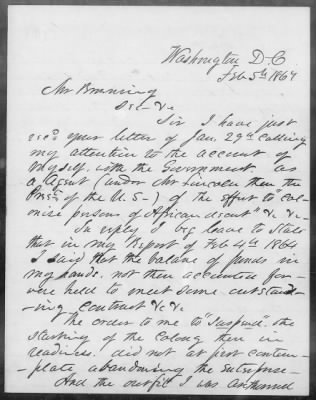 Washington D.C.
Feb 5th 1864
Mr Browning
Sec - &c
Sir I have just
recd your letter of Jan. 29th calling
my attention to the account of
myself with the Government as
a Agent (under Mr Lincoln then the
Prest of the U.S-) of the effort to colo-
nise persons of African decent" &c &c-
In reply I beg leave to state
that in my Report of Feb 4th 1864
I said that the balance of funds in
my hands. not then accounted for-
were held to meet some outstand-
-ing contract &c &c
The order to me to "Suspend" the
starting of the Colony then in
readiness. did not at first contem-
plate abandoning the enterprise-
And the outfit I was authorised